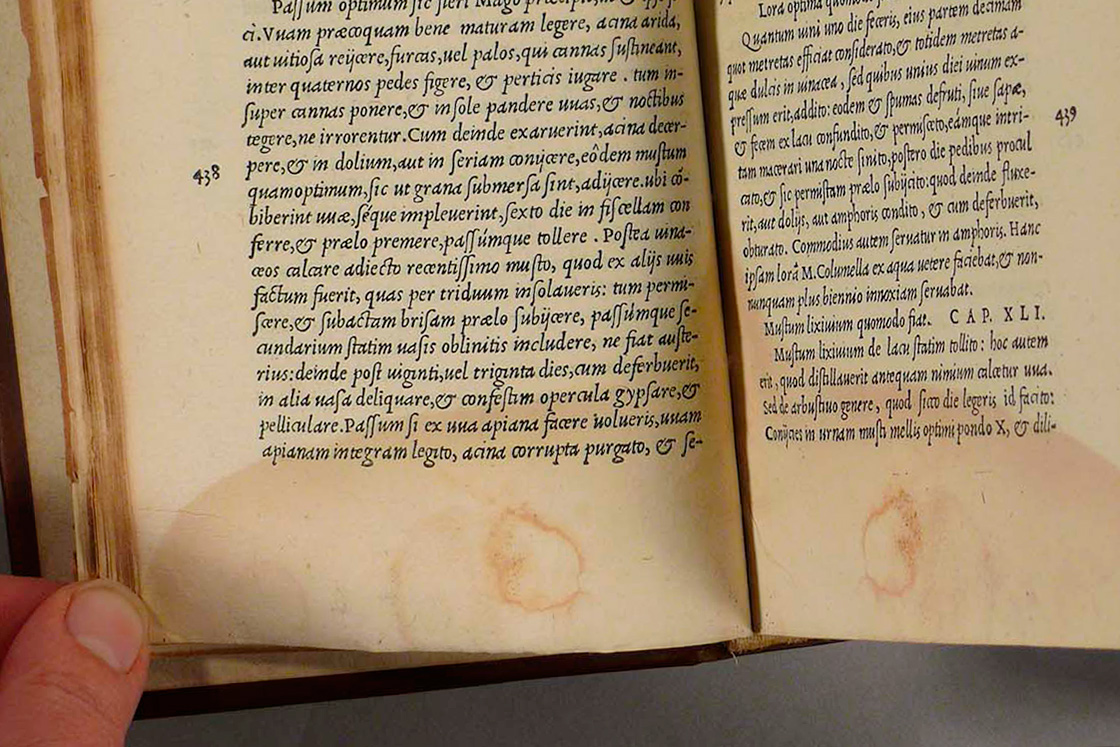 Passum optimum sic fieri Mago præcipit, ut & ipse fe-
ci. Vuam præcoquam bene maturam legere, acina arida,
aut uitiosa reijcere, furcas, uel palos, qui cannas sustineant,
inter quaternos pedes figere, & perticis iugare . tum in-
super cannas ponere, & in sole pandere uuas, & noctibus
tegere, ne irrorentur. Cum deinde exaruerint, acina decer-
pere, & in dolium, aut in seriam conijcere, eôdem mustum
quamoptimum, sic ut grana submersa sint, adijcere. ubi cō-
biberint uuæ, séque impleuerint, sexto die in fiscellam con
ferre, & prælo premere, passúmque tollere . Postea uina-
ceos calcare adiecto recentissimo musto, quod ex alijs uuis
factum fuerit, quas per triduum insolaueris: tum permi-
scere, & subactam brisam prælo subijcere, passúmque se-
cundarium statim uasis oblinitis includere, ne fiat auste-
rius: deinde post uiginti, uel triginta dies, cum deferbuerit,
in alia uasa deliquare, & confestim opercula gypsare, &
pelliculare. Passum si ex uua apiana facere uolueris, uuam
apianam integram legito, acina corrupta purgato, & se-
438
Lora optima
Quantum uini uno die feceris, eius partem decimam
quot metretas efficiat considerato, & totidem metretas a-
quæ dulcis in uinacea , sed quibus unius diei uinum ex-
pressum erit, addito: eodem & spumas defruti, siue sapæ,
& fecem ex lacu confundito, & permisceto, eámque intri-
tam macerari una nocte sinito, postero die pedibus procul
cato, & sic permistam prælo subijcito: quod deinde fluxe-
rit, aut dolijs, aut amphoris condito , & cum deferbuerit,
obturato. Commodius autem seruatur in amphoris. Hanc
ipsam lorā M. Columella ex aqua uetere faciebat, & non-
nunquam plus biennio innoxiam seruabat.
Mustum lixiuium quomodo fiat. CAP. XLI.
Mustum lixiuium de lacu statim tollito : hoc autem
erit, quod distillauerit antequam nimium calcetur uua.
Sed de arbustiuo genere, quod sicco die legeris id facito:
Conijcies in urnam musti mellis optimi pondo X, & dili-
439